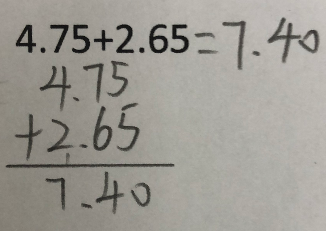 4.75+2.65=7.40
4.75
+2.65
7.40